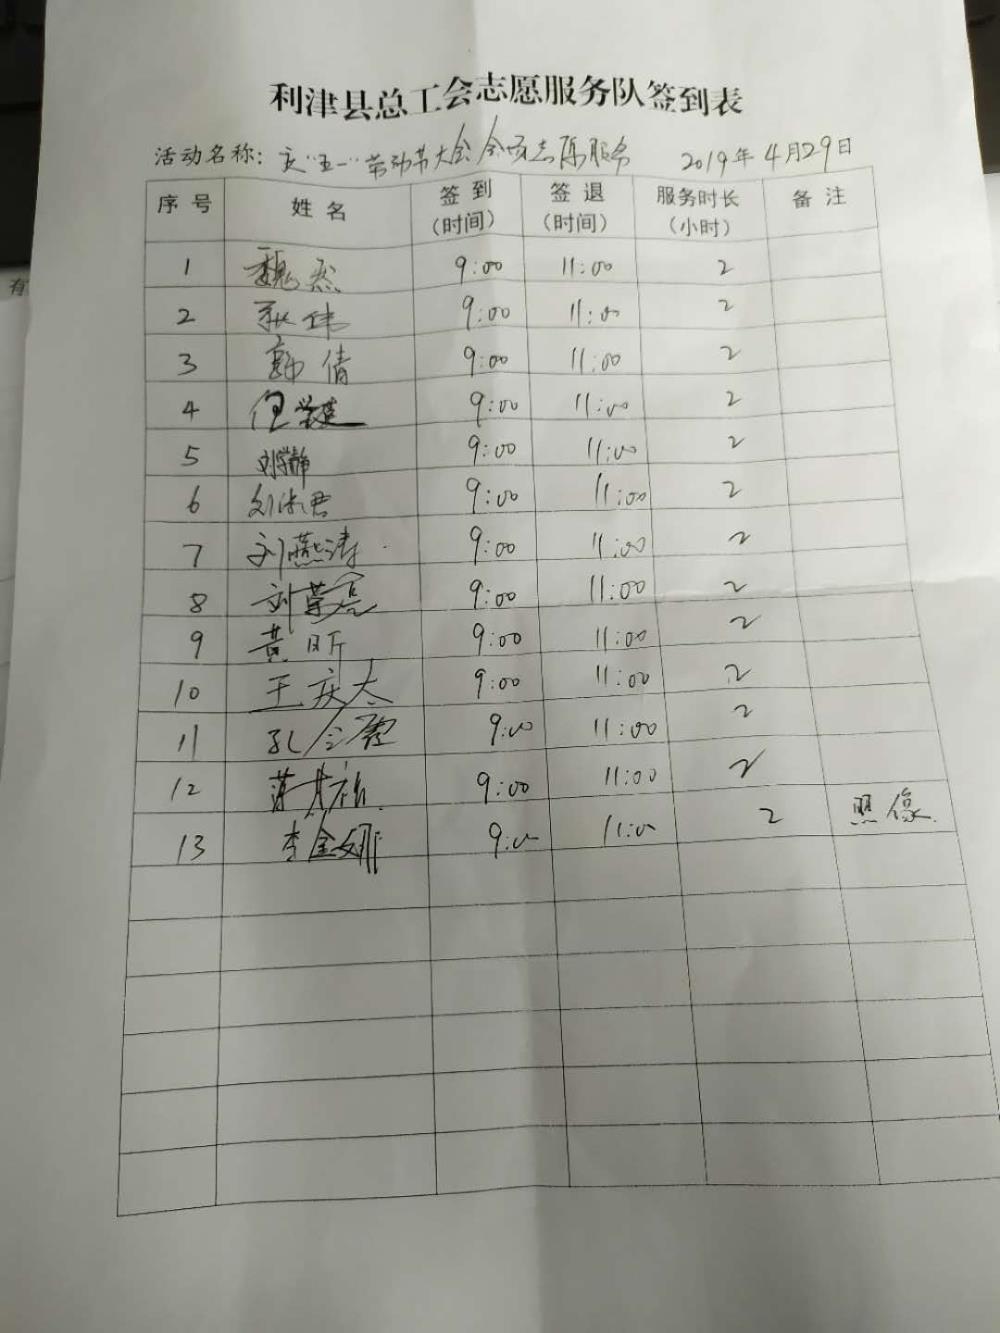 利津县总工会志愿服务队签到表
活动名称: 庆"五一"劳动节大会会务志愿服务 2019年4月29日
序号 姓名 签到(时间) 签退(时间) 服务时长(小时) 备注
1 魏 9:00 11:00 2
2 9:00 11:00 2
3 郭倩 9:00 11:00 2
4 9:00 11:00 2
5 刘学静 9:00 11:00 2
6 刘 君 9:00 11:00 2
7 刘燕涛 9:00 11:00 2
8 刘 亮 9:00 11:00 2
9 黄昕 9:00 11:00 2
10 王庆太 9:00 11:00 2
11 孔令霞 9:00 11:00 2
12 薄其 9:00 11:00 2
13 李金娜 9:00 11:00 2 照像.
有